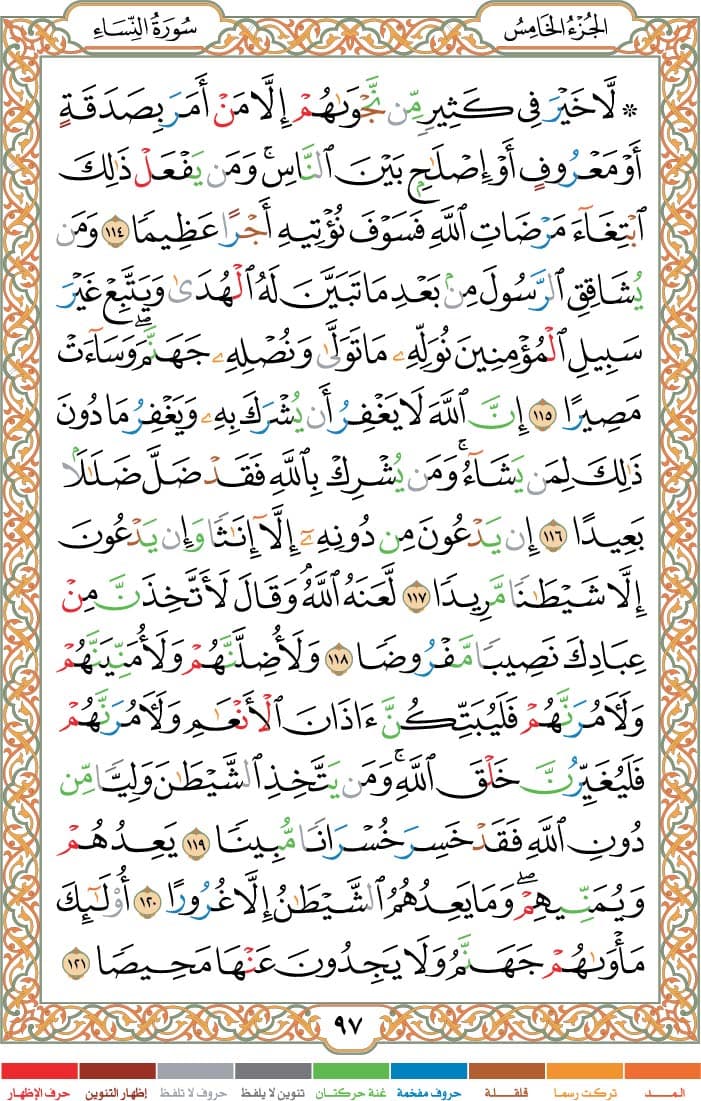 الجُزْءُ الخَامِسُ
سُورَةُ النِّسَاءِ
۞ لَّا خَيْرَ فِى كَثِيرٍ مِّن نَّجْوَىٰهُمْ إِلَّا مَنْ أَمَرَ بِصَدَقَةٍ
أَوْ مَعْرُوفٍ أَوْ إِصْلَٰحٍۭ بَيْنَ ٱلنَّاسِۚ وَمَن يَفْعَلْ ذَٰلِكَ
ٱبْتِغَآءَ مَرْضَاتِ ٱللَّهِ فَسَوْفَ نُؤْتِيهِ أَجْرًا عَظِيمًا ١١٤ وَمَن
يُشَاقِقِ ٱلرَّسُولَ مِنۢ بَعْدِ مَا تَبَيَّنَ لَهُ ٱلْهُدَىٰ وَيَتَّبِعْ غَيْرَ
سَبِيلِ ٱلْمُؤْمِنِينَ نُوَلِّهِۦ مَا تَوَلَّىٰ وَنُصْلِهِۦ جَهَنَّمَۖ وَسَآءَتْ
مَصِيرًا ١١٥ إِنَّ ٱللَّهَ لَا يَغْفِرُ أَن يُشْرَكَ بِهِۦ وَيَغْفِرُ مَا دُونَ
ذَٰلِكَ لِمَن يَشَآءُۚ وَمَن يُشْرِكْ بِٱللَّهِ فَقَدْ ضَلَّ ضَلَٰلًۢا
بَعِيدًا ١١٦ إِن يَدْعُونَ مِن دُونِهِۦٓ إِلَّآ إِنَٰثًا وَإِن يَدْعُونَ
إِلَّا شَيْطَٰنًا مَّرِيدًا ١١٧ لَّعَنَهُ ٱللَّهُۘ وَقَالَ لَأَتَّخِذَنَّ مِنْ
عِبَادِكَ نَصِيبًا مَّفْرُوضًا ١١٨ وَلَأُضِلَّنَّهُمْ وَلَأُمَنِّيَنَّهُمْ
وَلَءَامُرَنَّهُمْ فَلَيُبَتِّكُنَّ ءَاذَانَ ٱلْأَنْعَٰمِ وَلَءَامُرَنَّهُمْ
فَلَيُغَيِّرُنَّ خَلْقَ ٱللَّهِۚ وَمَن يَتَّخِذِ ٱلشَّيْطَٰنَ وَلِيًّا مِّن
دُونِ ٱللَّهِ فَقَدْ خَسِرَ خُسْرَانًا مُّبِينًا ١١٩ يَعِدُهُمْ
وَيُمَنِّيهِمْۖ وَمَا يَعِدُهُمُ ٱلشَّيْطَٰنُ إِلَّا غُرُورًا ١٢٠ أُو۟لَٰٓئِكَ
مَأْوَىٰهُمْ جَهَنَّمُ وَلَا يَجِدُونَ عَنْهَا مَحِيصًا ١٢١
٩٧
المـــد
تركت رسما
قلقـــلة
حروف مفخمة
غنة حركتـان
تنوين لا يلفظ
حروف لا تلفظ
إظهار التنوين
حرف الإظهار